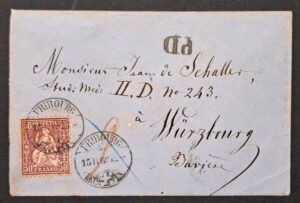 PD
Monsieur Jean de Schaller,
Stud. Med. II. D. No 243.
à
Würzbourg
Bavière
FRIBOURG
FRIBOURG
50 FRANCO 50